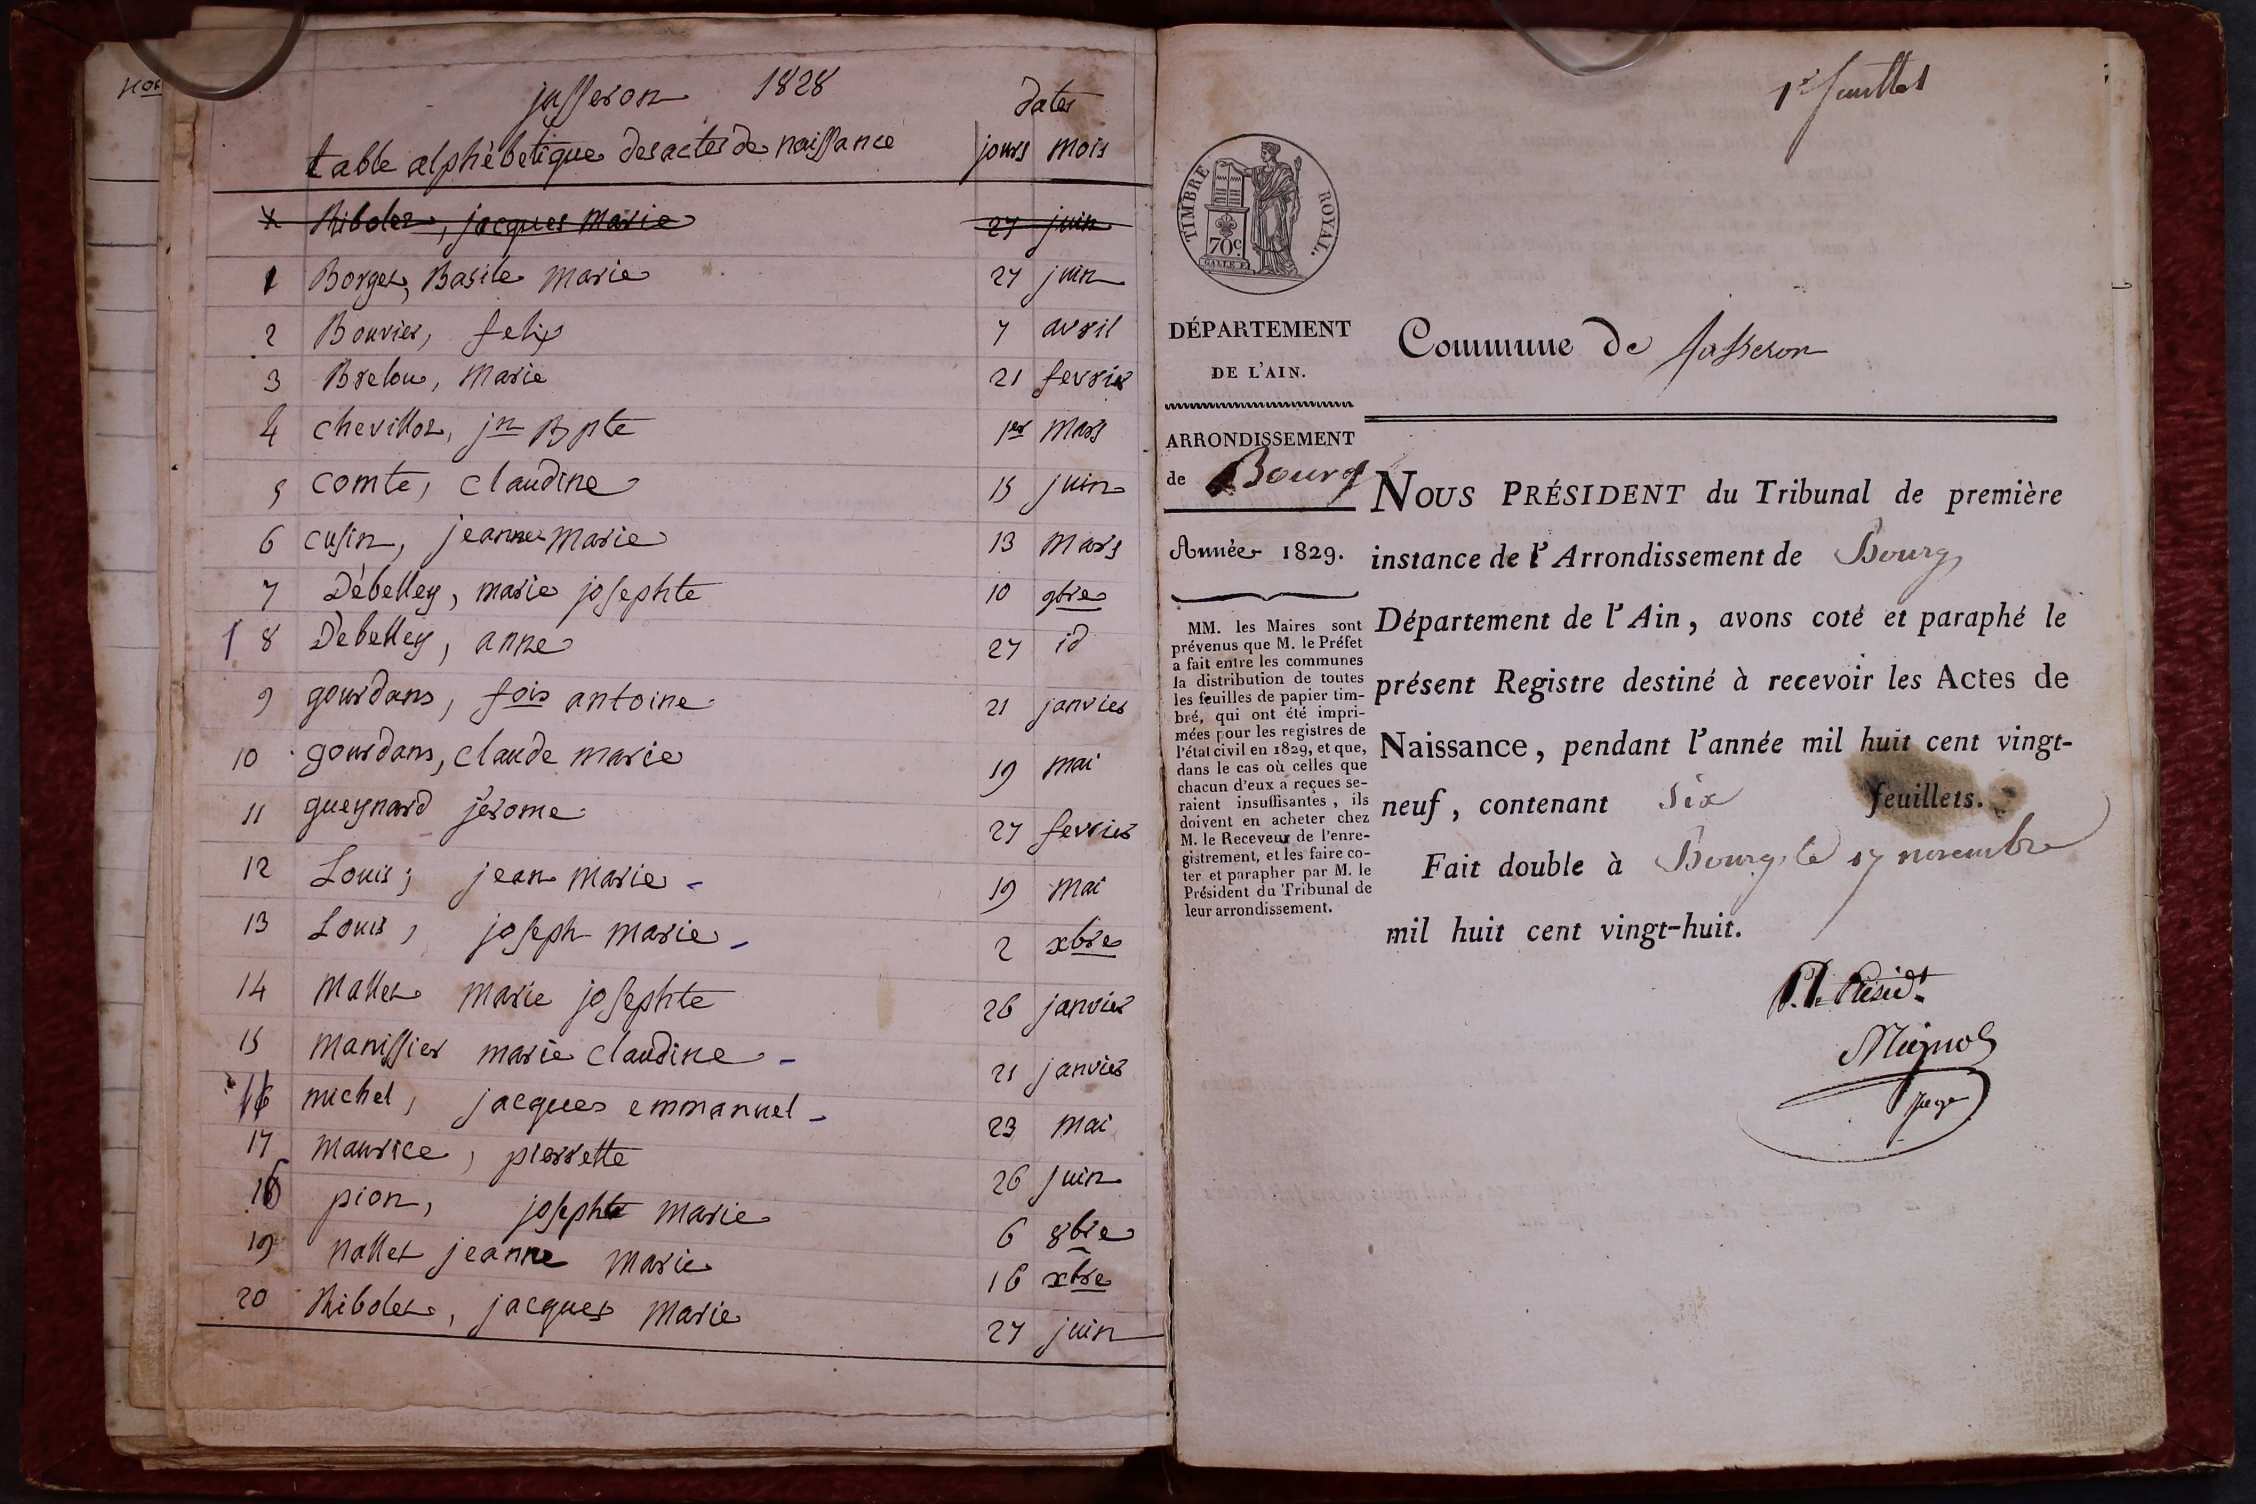 jasseron 1828
table alphèbetique des actes de naissance
dates
jours mois
Ribolet, jacques Marie 27 juin
1 Borget, Basile Marie 27 juin
2 Bouvier, felix 7 avril
3 Brelou, Marie 21 fevrier
4 chevillot, jn Bpte 1er Mars
5 comte, claudine 15 juin
6 cusin, jeanne Marie 13 Mars
7 Débelley, marie josephte 10 9bre
8 Debelley, anne 27 id
9 gourdans, fois antoine 21 janvier
10 gourdans, claude marie 19 mai
11 gueynard jérome 27 fevrier
12 Louis, jean Marie 19 Mai
13 Louis, joseph marie 2 xbre
14 Mallet Marie josephte 26 janvier
15 Manissier marie claudine 21 janvier
16 michel, jacques emmanuel 23 mai
17 maurice, pierrette 26 juin
18 pion, josephte marie 6 8bre
19 nallet jeanne Marie 16 xbre
20 Ribolet, jacques Marie 27 juin
1er feuillet
TIMBRE ROYAL.
70c
GALLE F.
DÉPARTEMENT
DE L'AIN.
ARRONDISSEMENT
de Bourg
Année 1829.
MM. les Maires sont
prévenus que M. le Préfet
a fait entre les communes
la distribution de toutes
les feuilles de papier tim-
bré, qui ont été impri-
mées pour les registres de
l'état civil en 1829, et que,
dans le cas où celles que
chacun d'eux a reçues se-
raient insuffisantes, ils
doivent en acheter chez
M. le Receveur de l'enre-
gistrement, et les faire co-
ter et parapher par M. le
Président du Tribunal de
leur arrondissement.
Commune de Jasseron
NOUS PRÉSIDENT du Tribunal de première
instance de l'Arrondissement de Bourg
Département de l'Ain, avons coté et paraphé le
présent Registre destiné à recevoir les Actes de
Naissance, pendant l'année mil huit cent vingt-
neuf, contenant six feuillets.
Fait double à Bourg, le 17 novembre
mil huit cent vingt-huit.
P. le Présidt
Mignot
juge